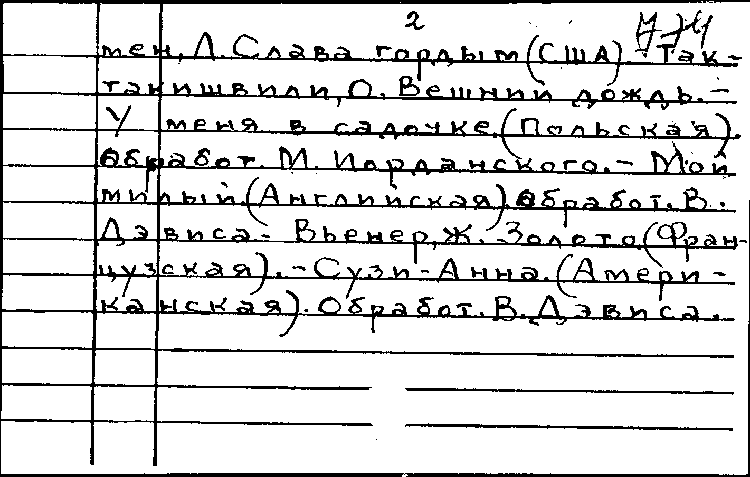 2
мен, Л. Слава гордым (США) - Так-
такишвили, О. Вешний дождь. -
У меня в садочке. (Польская).
Обработ. М. Иорданского. - Мой
милый. (Английская) Обработ. В.
Дэвиса - Вьенер, Ж. Золото. (Фран-
цузская). - Сузи-Анна. (Амери-
канская). Обработ. В. Дэвиса.